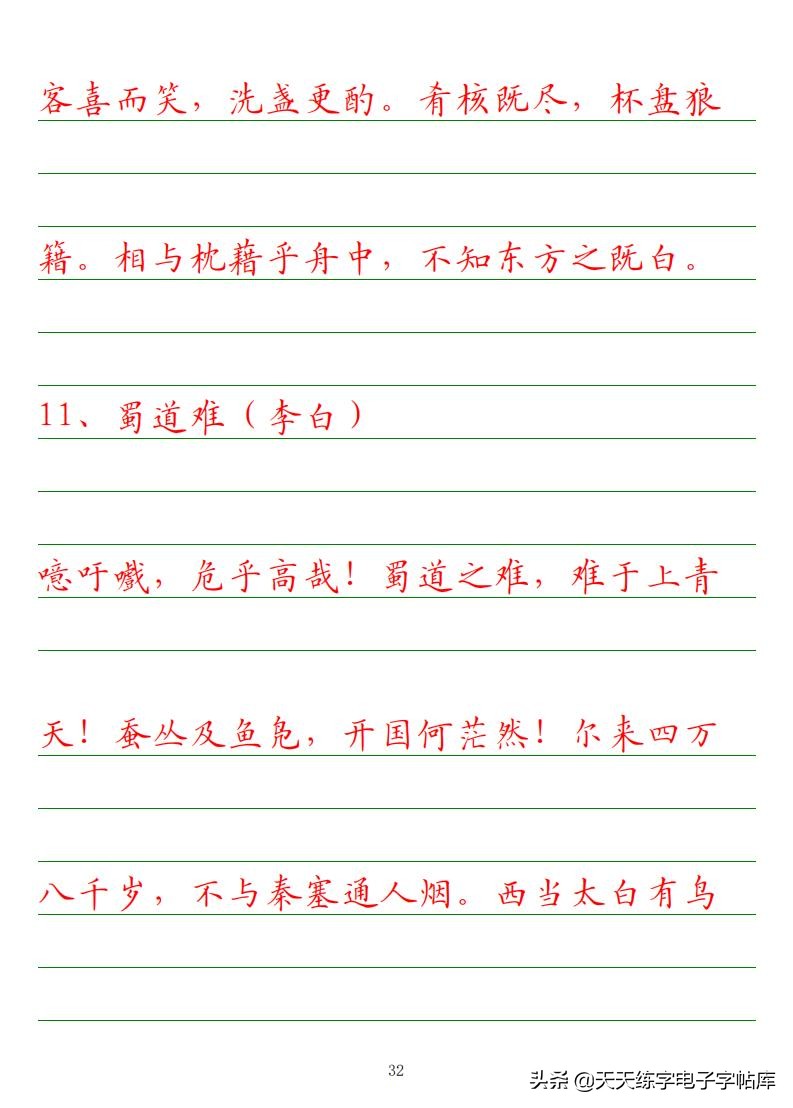 客喜而笑，洗盏更酌。肴核既尽，杯盘狼
籍。相与枕藉乎舟中，不知东方之既白。
11、蜀道难（李白）
噫吁嚱，危乎高哉！蜀道之难，难于上青
天！蚕丛及鱼凫，开国何茫然！尔来四万
八千岁，不与秦塞通人烟。西当太白有鸟
32
头条 @天天练字电子字帖库